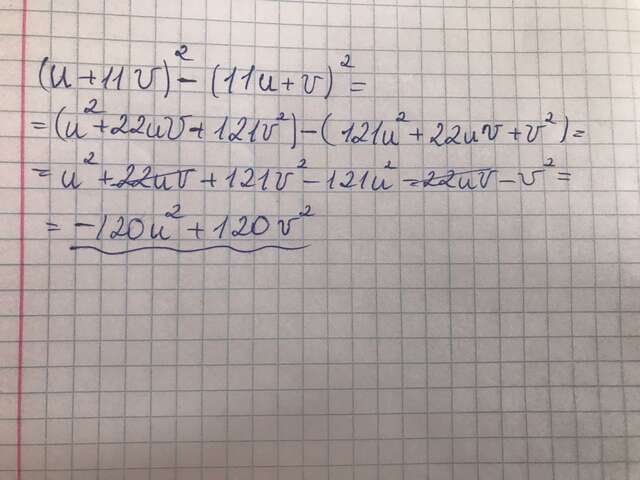 (u+11v)²-(11u+v)²=
=(u²+22uv+121v²)-(121u²+22uv+v²)=
=u²+22uv+121v²-121u²-22uv-v²=
=-120u²+120v²